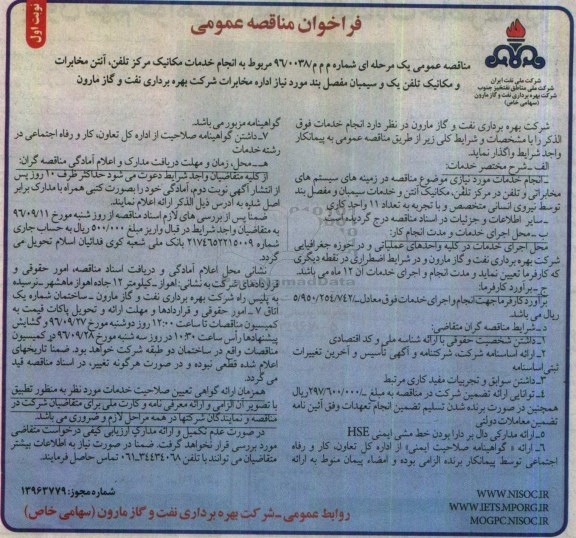 نوبت اول
فراخوان مناقصه عمومی
شرکت ملی نفت ایران
شرکت ملی مناطق نفتخیز جنوب
شرکت بهره برداری نفت و گاز مارون
(سهامی خاص)
مناقصه عمومی یک مرحله ای شماره م م م /۹۶/۰۰۳۸ مربوط به انجام خدمات مکانیک مرکز تلفن، آنتن مخابرات
و مکانیک تلفن یک و سیمبان مفصل بند مورد نیاز اداره مخابرات شرکت بهره برداری نفت و گاز مارون
شرکت بهره برداری نفت و گاز مارون در نظر دارد انجام خدمات فوق
الذکر را با مشخصات و شرایط کلی زیر از طریق مناقصه عمومی به پیمانکار
واجد شرایط واگذار نماید.
الف ـ شرح مختصر خدمات:
ـ انجام خدمات مورد نیازی موضوع مناقصه در زمینه های سیستم های
مخابراتی و تلفن در مرکز تلفن، مکانیک آنتن و خدمات سیمبان و مفصل بند
توسط نیروی انسانی متخصص و با تجربه به تعداد ۱۱ واحد کاری
ـ سایر اطلاعات و جزئیات در اسناد مناقصه درج گردیده است
ب ـ محل اجرای خدمات و مدت انجام کار:
محل اجرای خدمات در کلیه واحدهای عملیاتی و در حوزه جغرافیایی
شرکت بهره برداری نفت و گاز مارون و در شرایط اضطراری در نقطه دیگری
که کارفرما تعیین نماید و مدت انجام و اجرای خدمات آن ۱۲ ماه می باشد.
ج ـ برآورد کارفرما:
برآورد کارفرما جهت انجام و اجرای خدمات فوق معادل ـ/۵/۹۵۰/۲۵۴/۷۴۲
ریال می باشد.
د ـ شرایط مناقصه گران متقاضی:
۱ـ داشتن شخصیت حقوقی با ارائه شناسه ملی و کد اقتصادی
۲ـ ارائه اساسنامه شرکت، شرکتنامه و آگهی تأسیس و آخرین تغییرات
ثبتی اساسنامه
۳ـ داشتن سوابق و تجربیات مفید کاری مرتبط
۴ـ توانایی ارائه تضمین شرکت در مناقصه به مبلغ ـ/۲۹۷/۶۰۰/۰۰۰ریال
همچنین در صورت برنده شدن تسلیم تضمین انجام تعهدات وفق آئین نامه
تضمین معاملات دولتی
۵ـ ارائه مدارکی دال بر دارا بودن خط مشی ایمنی HSE
۶ـ ارائه « گواهینامه صلاحیت ایمنی» از اداره کل تعاون، کار و رفاه
اجتماعی توسط پیمانکار برنده الزامی بوده و امضاء پیمان منوط به ارائه
گواهینامه مزبور می باشد.
۷ـ داشتن گواهینامه صلاحیت از اداره کل تعاون، کار و رفاه اجتماعی در
رشته خدمات
هـ ـ محل، زمان و مهلت دریافت مدارک و اعلام آمادگی مناقصه گران:
از کلیه متقاضیان واجد شرایط دعوت می شود حداکثر ظرف ۱۰ روز پس
از انتشار آگهی نوبت دوم، آمادگی خود را بصورت کتبی همراه با مدارک برابر
اصل شده به آدرس ذیل الذکر ارائه اعلام نمایند.
ضمنا پس از بررسی های لازم اسناد مناقصه از روز شنبه مورخ ۹۶/۰۹/۱۱
به متقاضیان واجد شرایط در قبال واریز مبلغ ۵۰۰/۰۰۰ ریال به حساب جاری
شماره ۲۱۷۴۶۵۲۲۱۵۰۰۹ بانک ملی شعبه کوی فدائیان اسلام تحویل می
گردد.
نشانی محل اعلام آمادگی و دریافت اسناد مناقصه، امور حقوقی و
قراردادهای شرکت به نشانی: اهواز ـ کیلومتر ۱۲ جاده اهواز ماهشهر ـ نرسیده
به پلیس راه شرکت بهره برداری نفت و گاز مارون ـ ساختمان شماره یک
اتاق ۷ ـ امور حقوقی و قراردادها و مهلت ارائه و تحویل پاکات قیمت به
کمیسیون مناقصات تا ساعت ۱۲:۰۰ روز دوشنبه مورخ ۹۶/۰۹/۲۷ و گشایش
پیشنهادها رأس ساعت ۱۰:۳۰ در روز سه شنبه مورخ ۹۶/۰۹/۲۸ در کمیسیون
مناقصات واقع در ساختمان دو طبقه شرکت خواهد بود. ضمنا تاریخهای
اعلام شده قطعی نبوده و در صورت هرگونه تغییر، در اسناد مناقصه قید
می گردد.
همزمان ارائه گواهی تعیین صلاحیت خدمات مورد نظر به منظور تطبیق
با تصویر آن الزامی و ارائه معرفی نامه و کارت ملی برای متقاضیان شرکت در
مناقصه و نمایندگان شرکتها در همه مراحل لازم و ضروری می باشد.
در صورت عدم تکمیل و ارائه مدارک ارزیابی کیفی درخواست متقاضی
مورد بررسی قرار نخواهد گرفت. ضمنا در صورت نیاز به اطلاعات بیشتر
متقاضیان می توانند با تلفن ۳۴۴۳۴۰۶۸-۰۶۱ تماس حاصل فرمایند.
WWW.NISOC.IR
WWW.IETS.MPORG.IR
MOGPC.NISOC.IR
شماره مجوز: ۱۳۹۶۳۷۷۹
روابط عمومی ـ شرکت بهره برداری نفت و گاز مارون (سهامی خاص)